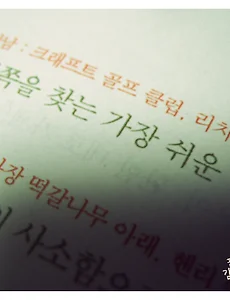 남 : 크래프트 골프 클럽. 리치
쪽을 찾는 가장 쉬운
가장 떡갈나무 아래. 헨리
사소함으